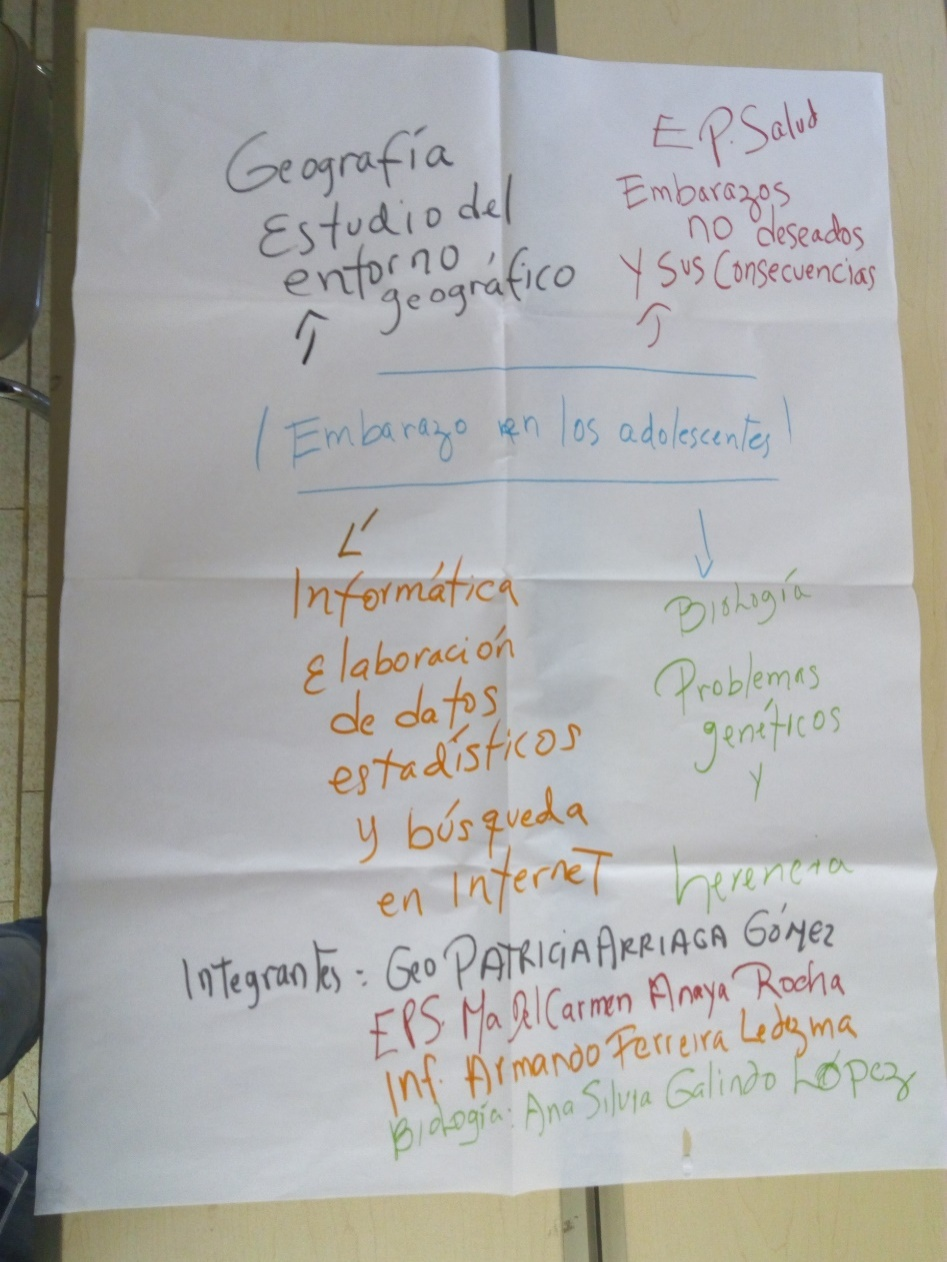 Geografía
Estudio del
entorno
geográfico
E P. Salud
Embarazos
no deseados
Y Sus Consecuencias
Embarazo en los adolescentes
Informática
Elaboración
de datos
estadísticos
y búsqueda
en InterneT
Biología
Problemas
genéticos
y
herencia
Integrantes: Geo PATRICIA ARRIAGA GÓMEZ
EPS. Ma Del Carmen Anaya Rocha
Inf. Armando Ferreira Ledezma
Biología: Ana Silvia Galindo López